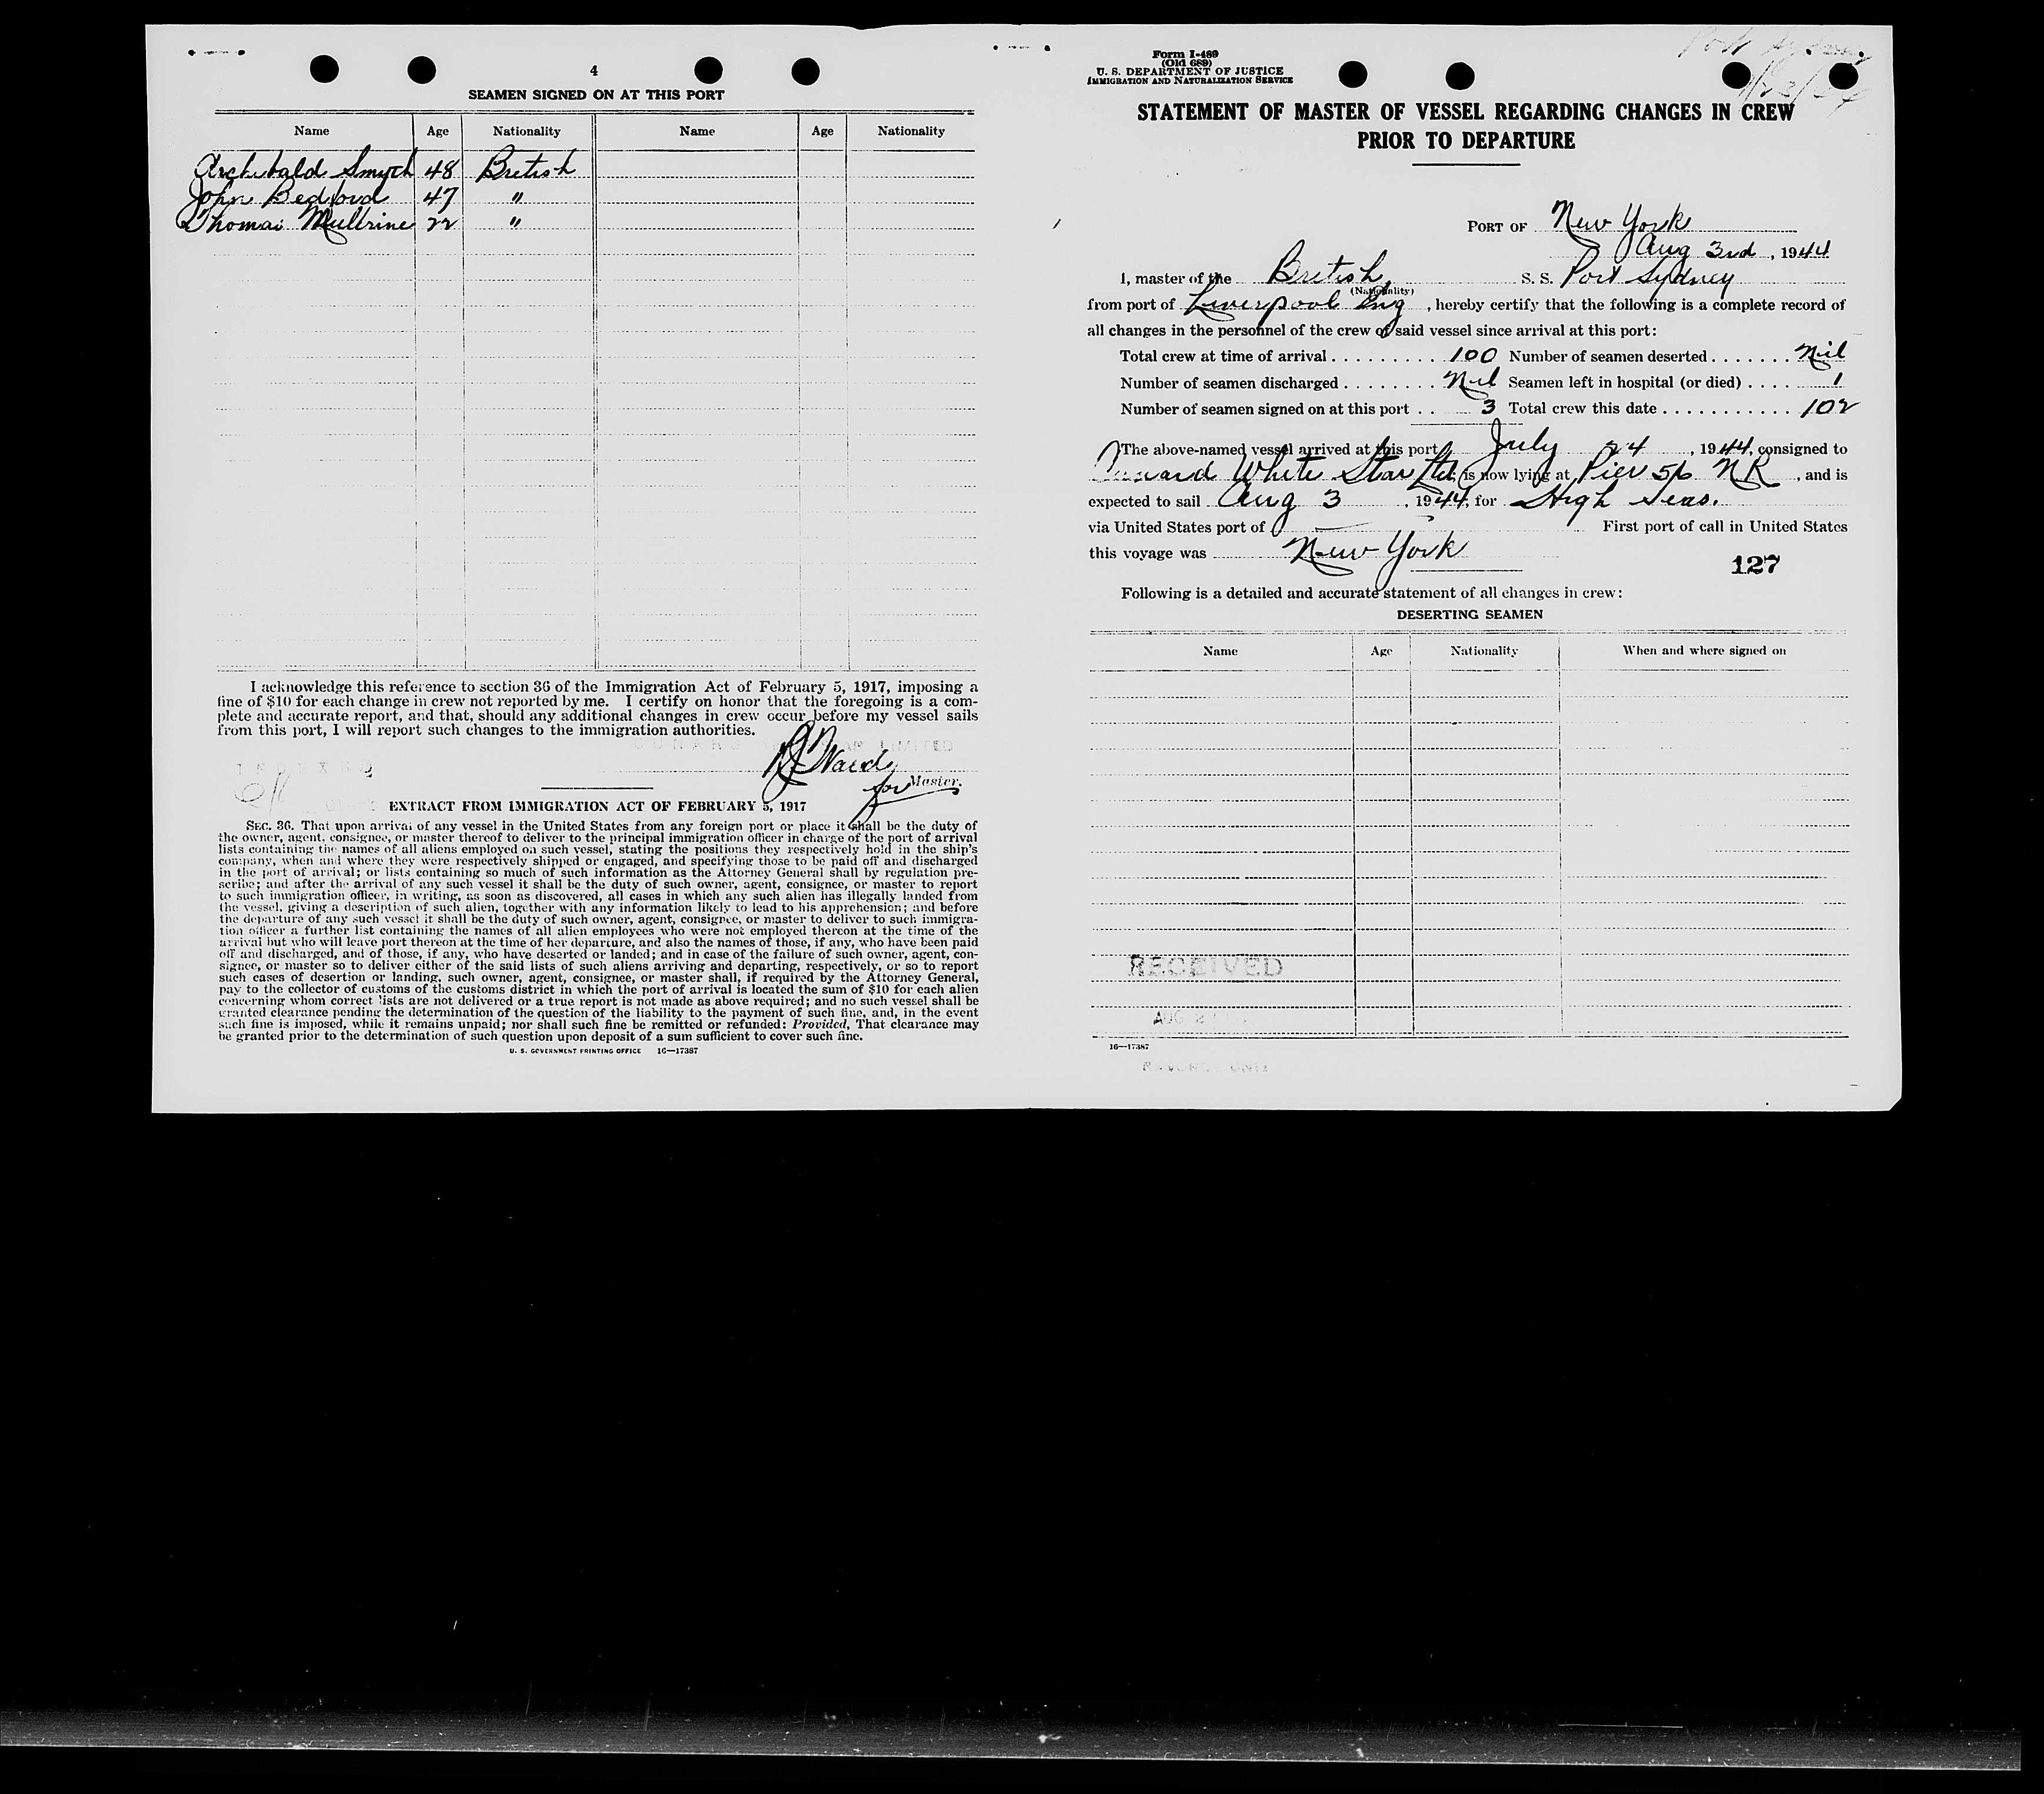 4
SEAMEN SIGNED ON AT THIS PORT
Name Age Nationality Name Age Nationality
Archibald Smyth 48 British
John Bedford 47 "
Thomas Mullrine 22 "
I acknowledge this reference to section 36 of the Immigration Act of February 5, 1917, imposing a
fine of $10 for each change in crew not reported by me. I certify on honor that the foregoing is a com-
plete and accurate report, and that, should any additional changes in crew occur before my vessel sails
from this port, I will report such changes to the immigration authorities.
CUNARD LIMITED
Ward
INDEXED
for Master.
EXTRACT FROM IMMIGRATION ACT OF FEBRUARY 5, 1917
SEC. 36. That upon arrival of any vessel in the United States from any foreign port or place it shall be the duty of
the owner, agent, consignee, or master thereof to deliver to the principal immigration officer in charge of the port of arrival
lists containing the names of all aliens employed on such vessel, stating the positions they respectively hold in the ship's
company, when and where they were respectively shipped or engaged, and specifying those to be paid off and discharged
in the port of arrival; or lists containing so much of such information as the Attorney General shall by regulation pre-
scribe; and after the arrival of any such vessel it shall be the duty of such owner, agent, consignee, or master to report
to such immigration officer, in writing, as soon as discovered, all cases in which any such alien has illegally landed from
the vessel, giving a description of such alien, together with any information likely to lead to his apprehension; and before
the departure of any such vessel it shall be the duty of such owner, agent, consignee, or master to deliver to such immigra-
tion officer a further list containing the names of all alien employees who were not employed thereon at the time of the
arrival but who will leave port thereon at the time of her departure, and also the names of those, if any, who have been paid
off and discharged, and of those, if any, who have deserted or landed; and in case of the failure of such owner, agent, con-
signee, or master so to deliver either of the said lists of such aliens arriving and departing, respectively, or so to report
such cases of desertion or landing, such owner, agent, consignee, or master shall, if required by the Attorney General,
pay to the collector of customs of the customs district in which the port of arrival is located the sum of $10 for each alien
concerning whom correct lists are not delivered or a true report is not made as above required; and no such vessel shall be
granted clearance pending the determination of the question of the liability to the payment of such fine, and, in the event
such fine is imposed, while it remains unpaid; nor shall such fine be remitted or refunded: Provided, That clearance may
be granted prior to the determination of such question upon deposit of a sum sufficient to cover such fine.
U. S. GOVERNMENT PRINTING OFFICE 16—17387
Form I-489
(Old 689)
U. S. DEPARTMENT OF JUSTICE
IMMIGRATION AND NATURALIZATION SERVICE
Port Sydney
STATEMENT OF MASTER OF VESSEL REGARDING CHANGES IN CREW
PRIOR TO DEPARTURE
PORT OF New York
Aug 3rd, 1944
I, master of the British S. S. Port Sydney
(Nationality)
from port of Liverpool Eng, hereby certify that the following is a complete record of
all changes in the personnel of the crew of said vessel since arrival at this port:
Total crew at time of arrival .......... 100 Number of seamen deserted ....... Nil
Number of seamen discharged ........ Nil Seamen left in hospital (or died) .... 1
Number of seamen signed on at this port .. 3 Total crew this date ........... 102
The above-named vessel arrived at this port July 24, 1944, consigned to
Cunard White Star Ltd, is now lying at Pier 56 NR, and is
expected to sail Aug 3, 1944, for High Seas.
via United States port of — First port of call in United States
this voyage was New York
127
Following is a detailed and accurate statement of all changes in crew:
DESERTING SEAMEN
Name Age Nationality When and where signed on
RECEIVED
AUG
16—17387